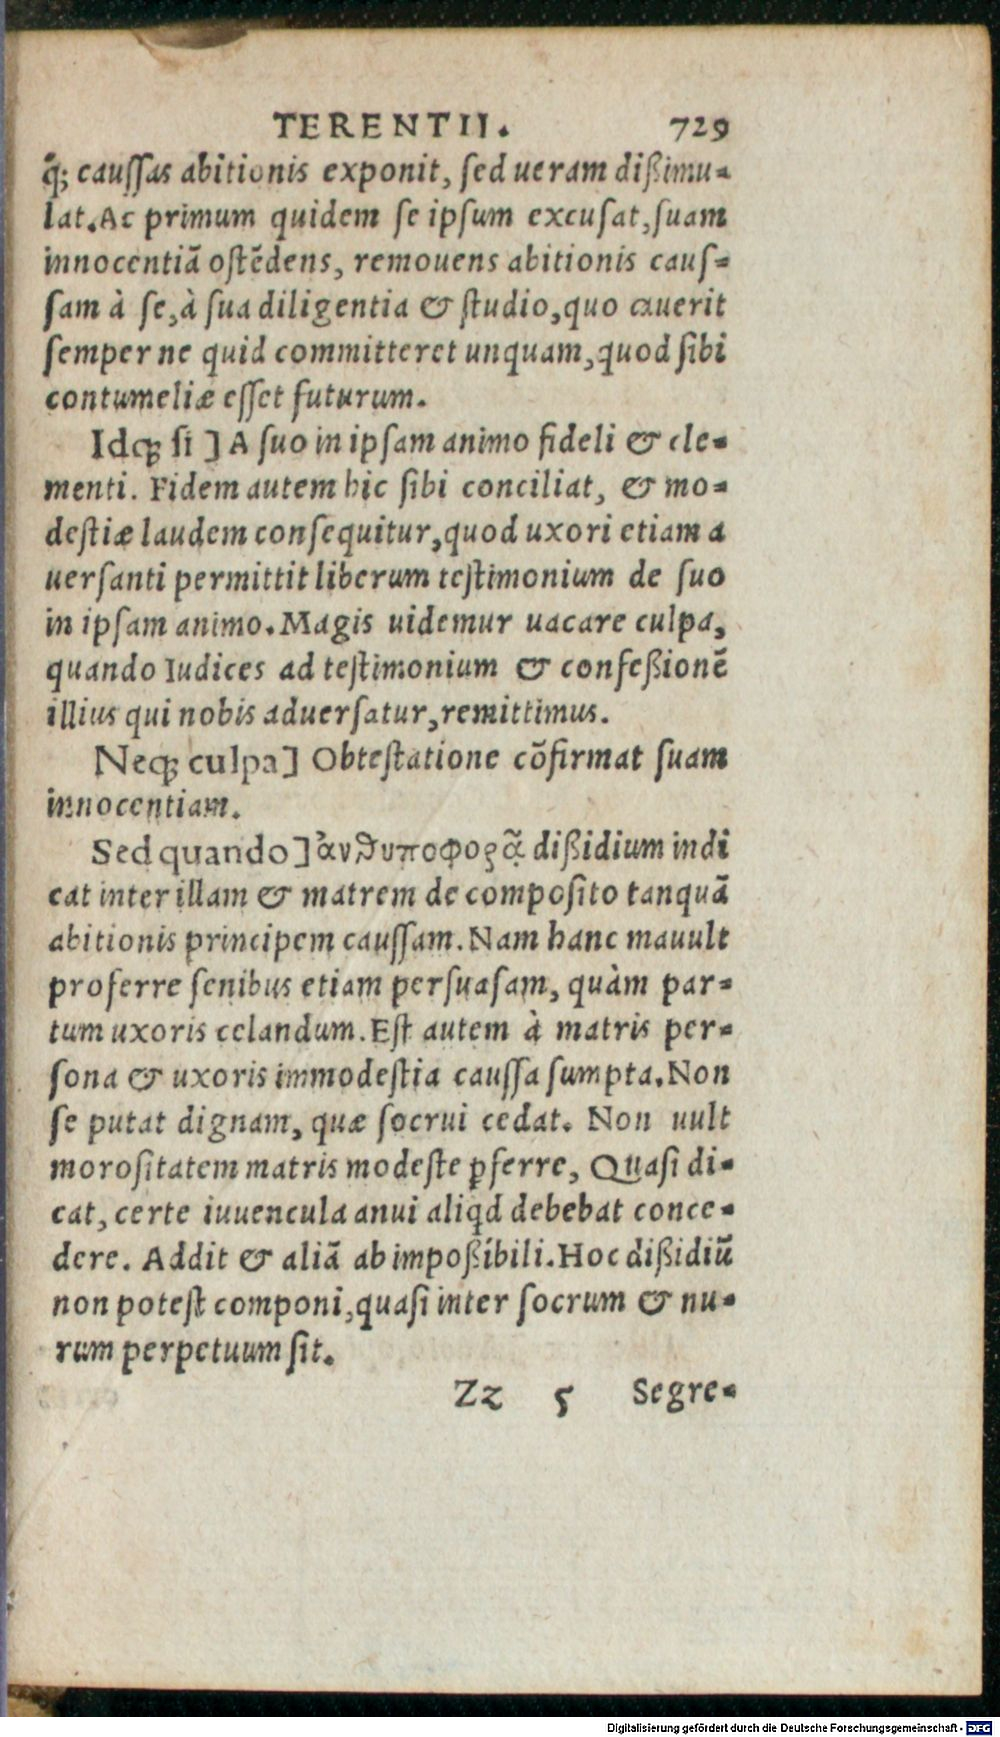 TERENTII. 729
q̃; caussas abitionis exponit, sed ueram dißimu-
lat. Ac primum quidem se ipsum excusat, suam
innocentiã ostẽdens, remouens abitionis caus-
sam à se, à sua diligentia & studio, quo cauerit
semper ne quid committeret unquam, quod sibi
contumeliæ esset futurum.
Idq; si ] A suo in ipsam animo fideli & cle-
menti. Fidem autem hic sibi conciliat, & mo-
destiæ laudem consequitur, quod uxori etiam a
uersanti permittit liberum testimonium de suo
in ipsam animo. Magis uidemur uacare culpa,
quando Iudices ad testimonium & confeßionẽ
illius qui nobis aduersatur, remittimus.
Neq; culpa] Obtestatione cõfirmat suam
innocentiam.
Sed quando] ἀνθυποφορᾷ dißidium indi
cat inter illam & matrem de composito tanquã
abitionis principem caussam. Nam hanc mauult
proferre senibus etiam persuasam, quàm par-
tum uxoris celandum. Est autem à matris per-
sona & uxoris immodestia caussa sumpta. Non
se putat dignam, quæ socrui cedat. Non uult
morositatem matris modeste ꝑferre, Quasi di-
cat, certe iuuencula anui aliqd debebat conce-
dere. Addit & aliã ab impoßibili. Hoc dißidiũ
non potest componi, quasi inter socrum & nu-
rum perpetuum sit.
Zz 5 Segre-
Digitalisierung gefördert durch die Deutsche Forschungsgemeinschaft - DFG